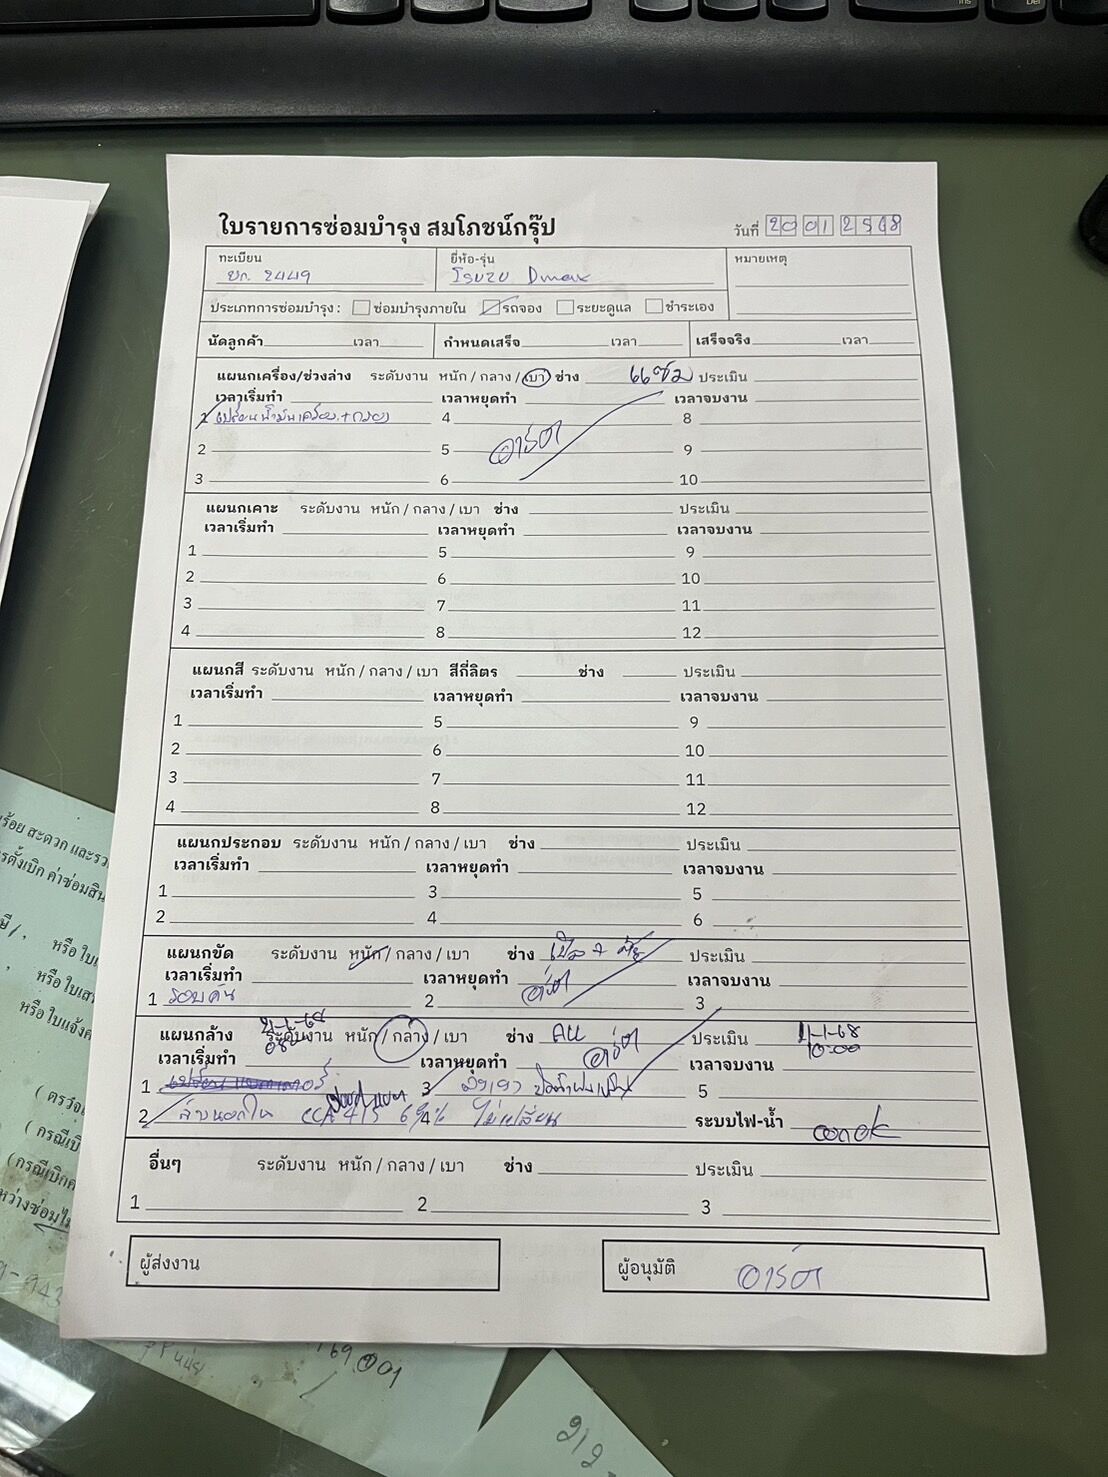 ใบรายการซ่อมบำรุง สมโภชน์กรุ๊ป
วันที่ 20 01 2568
ทะเบียน ยี่ห้อ-รุ่น หมายเหตุ
2449 ISUZU Dmax
ประเภทการซ่อมบำรุง : ซ่อมบำรุงภายใน รถจอง ระยะดูแล ชำระเอง
นัดลูกค้า เวลา กำหนดเสร็จ เวลา เสร็จจริง เวลา
แผนกเครื่อง/ช่วงล่าง ระดับงาน หนัก / กลาง / เบา ช่าง ประเมิน
เวลาเริ่มทำ เวลาหยุดทำ เวลาจบงาน
1 เปลี่ยนน้ำมันเครื่อง+กรอง 4 8
2 5 อาร์ต 9
3 6 10
แผนกเคาะ ระดับงาน หนัก / กลาง / เบา ช่าง ประเมิน
เวลาเริ่มทำ เวลาหยุดทำ เวลาจบงาน
1 5 9
2 6 10
3 7 11
4 8 12
แผนกสี ระดับงาน หนัก / กลาง / เบา สีกี่ลิตร ช่าง ประเมิน
เวลาเริ่มทำ เวลาหยุดทำ เวลาจบงาน
1 5 9
2 6 10
3 7 11
4 8 12
แผนกประกอบ ระดับงาน หนัก / กลาง / เบา ช่าง ประเมิน
เวลาเริ่มทำ เวลาหยุดทำ เวลาจบงาน
1 3 5
2 4 6
แผนกขัด ระดับงาน หนัก / กลาง / เบา ช่าง ประเมิน
เวลาเริ่มทำ เวลาหยุดทำ เวลาจบงาน
1 รอบคัน 2 อาร์ต 3
แผนกล้าง ระดับงาน หนัก / กลาง / เบา ช่าง ALL อาร์ต ประเมิน 21-1-68
เวลาเริ่มทำ เวลาหยุดทำ เวลาจบงาน 10:00
1 3 5
2 ล้างนอกใน CCA 415 69% 4 ไม่เปลี่ยน ระบบไฟ-น้ำ
อื่นๆ ระดับงาน หนัก / กลาง / เบา ช่าง ประเมิน
1 2 3
ผู้ส่งงาน ผู้อนุมัติ อาร์ต